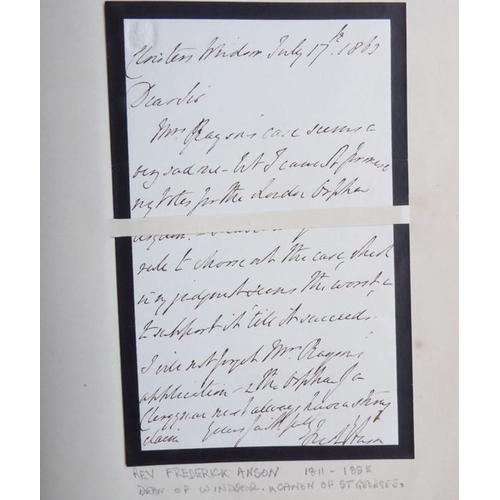 Cloisters Windsor July 17th 1863
Dear Sir
Mrs Rayson's case seems a
very sad one - but I cannot promise
my votes for the London Orphan
rule to choose out the case, which
in my judgment seems the worst, &
to support it till it succeeds.
I will not forget Mrs Rayson's
application - & the Orphan of a
Clergyman must always have a strong
claim Yours faithfully
REV FREDERICK ANSON 1811 - 1885
DEAN OF WINDSOR. & CANON OF ST GEORGES.